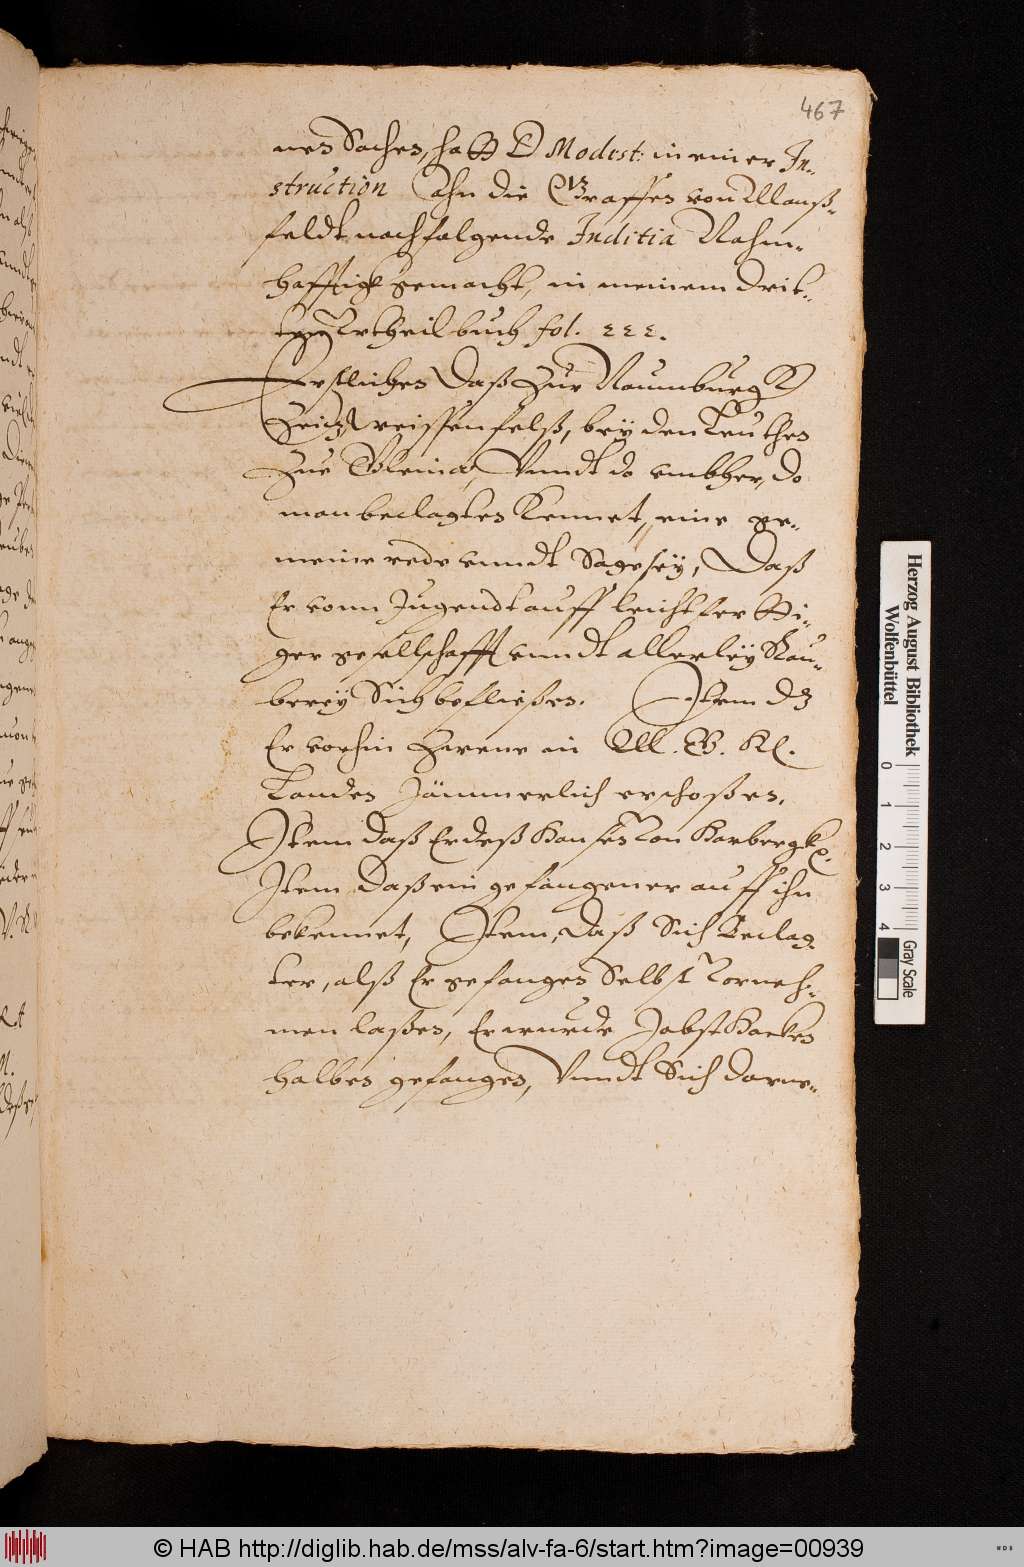 467
nen Sachen, hatt D Modest: in einer In-
struction Ahn die Graffen von Manß-
feldt nachfolgende Inditia Nahm-
hafftigk gemacht, in meinem drit-
ten Urtheilbuch fol. 222.
Erstlichen Daß Zur Naumburgk
Zeitz Weissenfelß, bey den Leuthen
Zue Gleina, Unndt do umbher, do
man beclagten Kennet, eine ge-
meine rede unndt Sage sey, Daß
Er vonn Jugendt auff leichtfertti-
ger gesellschafft unndt allerley Rau-
berey Sich befließen. Item dz
Er vorhin Zweene in M. G. H.
Landen Jämmerlich erschoßen.
Item daß Er deß Hansen Von Harbergk
Item, Daß ein gefangener auff ihn
bekennet, Item, Daß Sich Beclag-
ter, alß Er gefangen Selbst Vorneh-
men laßen, Er wurde Jobst Hacken
halben gefangen, Unndt Sich darne-
Herzog August Bibliothek
Wolfenbüttel
0 1 2 3 4
Gray Scale
© HAB http://diglib.hab.de/mss/alv-fa-6/start.htm?image=00939